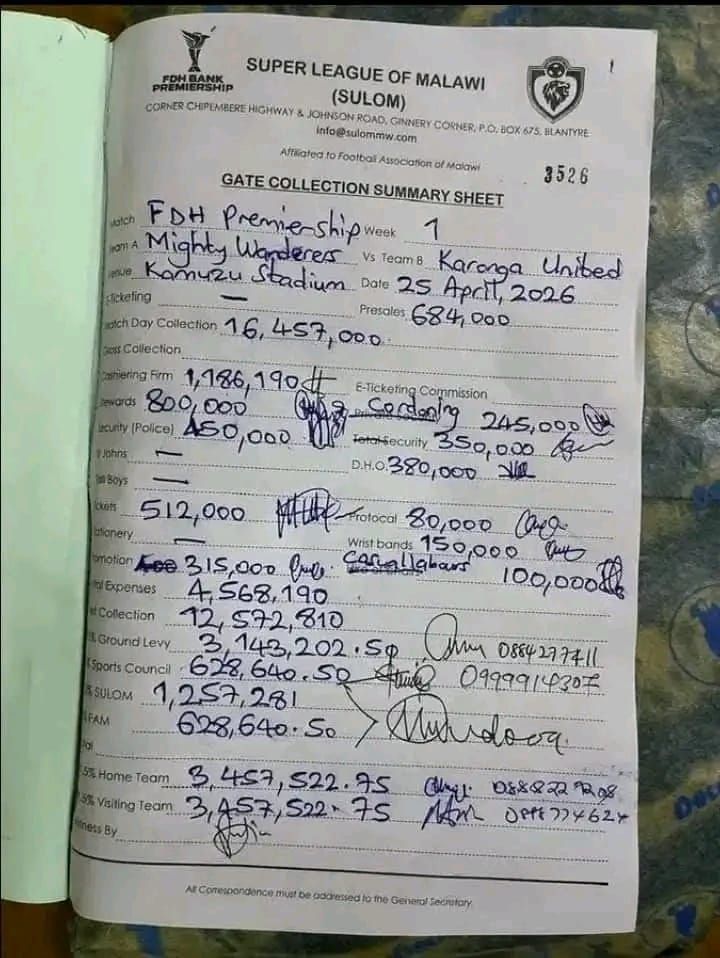 FDH BANK
PREMIERSHIP
SUPER LEAGUE OF MALAWI
(SULOM)
CORNER CHIPEMBERE HIGHWAY & JOHNSON ROAD, GINNERY CORNER, P.O. BOX 675, BLANTYRE
info@sulommw.com
Affiliated to Football Association of Malawi
3526
GATE COLLECTION SUMMARY SHEET
Match FDH Premiership Week 1
Team A Mighty Wanderers Vs Team B Karonga United
Venue Kamuzu Stadium Date 25 April, 2026
E-Ticketing — Presales 684,000
Match Day Collection 16,457,000
Gross Collection
Cashiering Firm 1,186,190 E-Ticketing Commission
Stewards 800,000 Cordoning 245,000
Security (Police) 450,000 Total Security 350,000
St Johns — D.H.O. 380,000
Ball Boys —
Tickets 512,000 Protocal 80,000
Stationery — Wrist bands 150,000
Promotion 315,000 100,000
Total Expenses 4,568,190
Net Collection 12,572,810
% Ground Levy 3,143,202.50 0884277411
% Sports Council 628,640.50 0999914307
% SULOM 1,257,281
% FAM 628,640.50
Total
.5% Home Team 3,457,522.75
.5% Visiting Team 3,457,522.75
Witness By
All Correspondence must be addressed to the General Secretary.